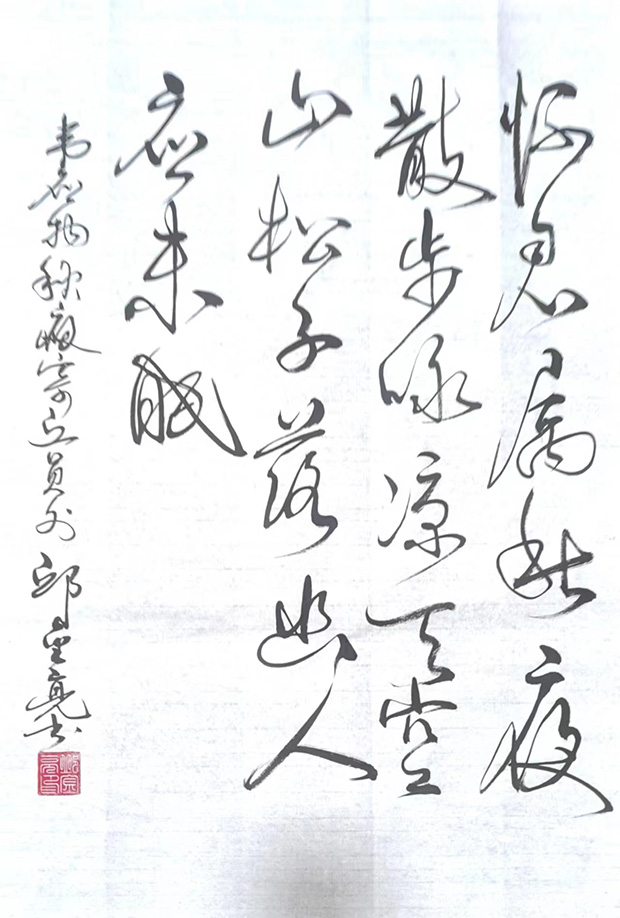 怀君属秋夜
散步咏凉天空
山松子落幽人
应未眠
韦应物秋夜寄丘员外 邱亮书